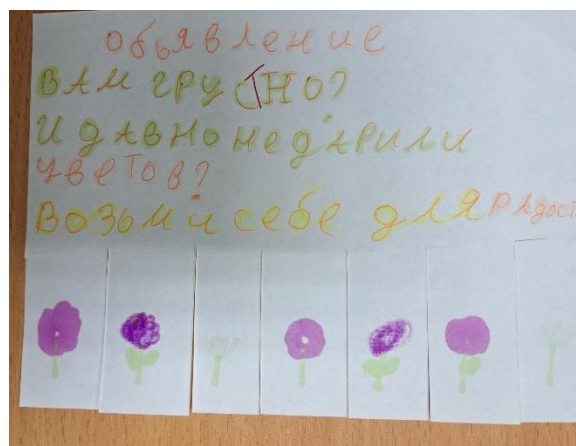 Обьявление
ВАМ ГРУСТНО?
И ДАВНО НЕ ДАРИЛИ
ЦВЕТОВ?
ВОЗЬМИ СЕБЕ ДЛЯ РАДОСТ